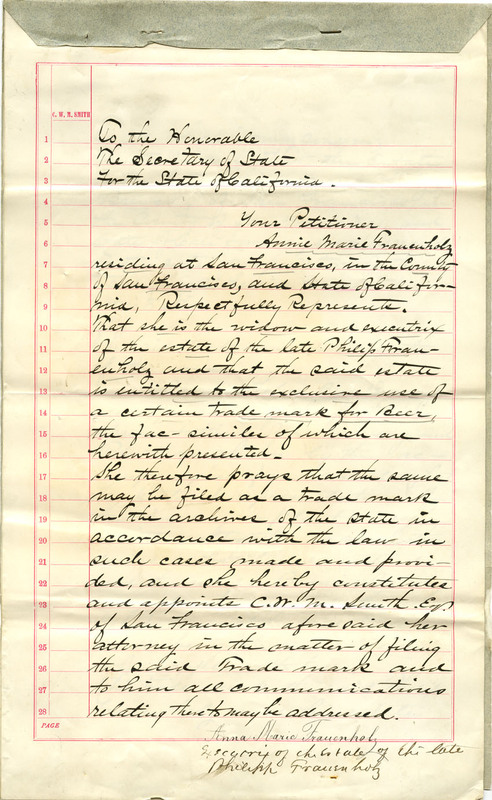 C. W. M. SMITH
1 To the Honorable
2 The Secretary of State
3 For the State of California.
4
5 Your Petitioner
6 Annie Marie Frauenholz
7 residing at San Francisco, in the County
8 of San Francisco, and State of Califor-
9 nia, Respectfully Represents.
10 That she is the widow and executrix
11 of the estate of the late Philip Frau-
12 enholz and that the said estate
13 is entitled to the exclusive use of
14 a certain trade mark for Beer,
15 the fac-similes of which are
16 herewith presented.
17 She therefore prays that the same
18 may be filed as a trade mark
19 in the archives of the state in
20 accordance with the law in
21 such cases made and provi-
22 ded, and she hereby constitutes
23 and appoints C. W. M. Smith Esq
24 of San Francisco aforesaid her
25 attorney in the matter of filing
26 the said Trade mark and
27 to him all communications
28 relating thereto may be addressed.
PAGE
Anna Marie Frauenholz
of the late
Philipp Frauenholz